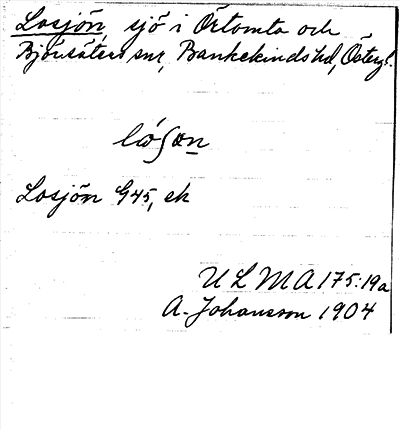 Losjön, sjö i Örtomta och
Björsäters snr, Bankekinds hd, Östergl.
Losjön G45, ek
ULMA 175:19a
A. Johansson 1904